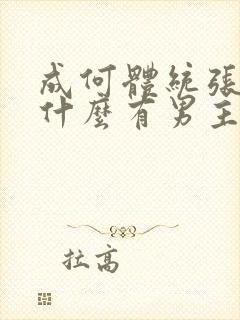 成何體統張
什麼有男主
拉高